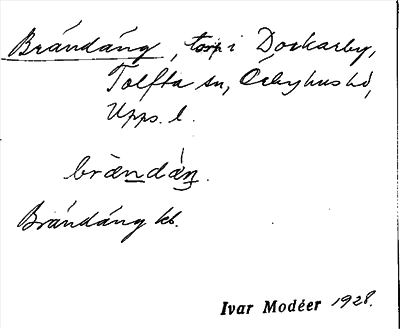 Brándáng, torp i Dockarby,
Tolfta sn, Örbyhus hd,
Upps. l.
brændáŋ.
Brándáng kb.
Ivar Modéer 1928.